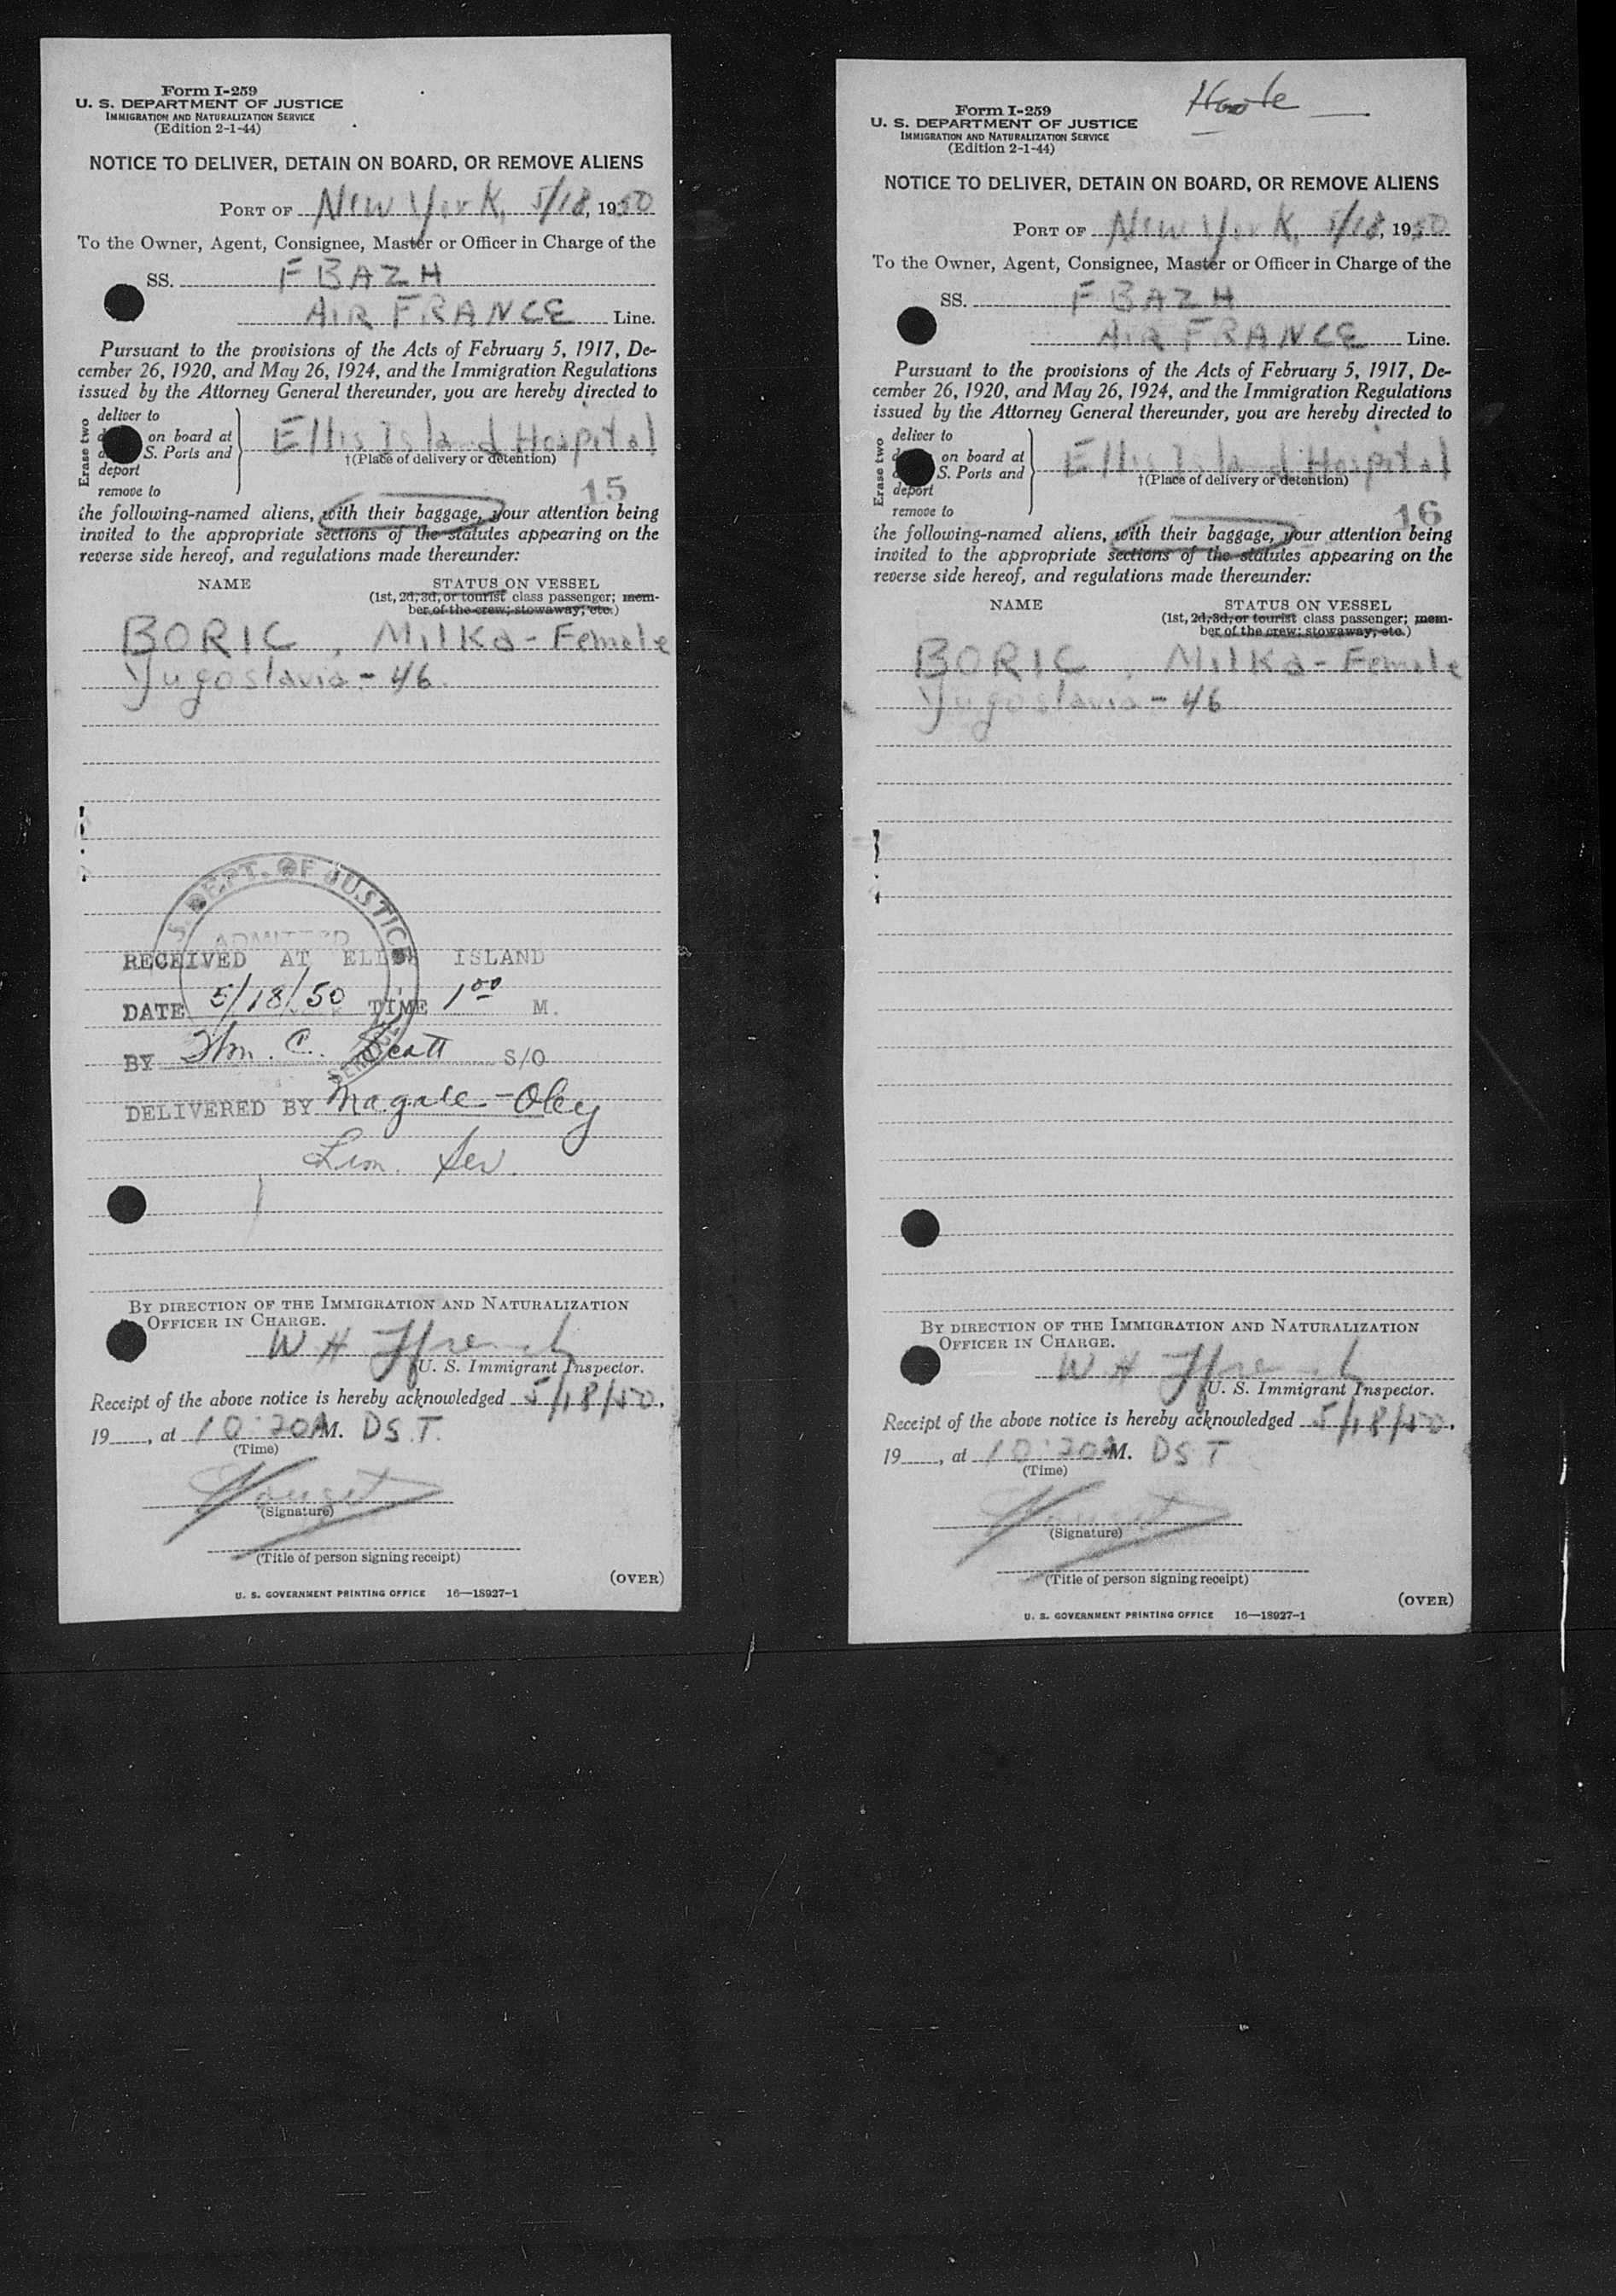 Form I-259
U. S. DEPARTMENT OF JUSTICE
IMMIGRATION AND NATURALIZATION SERVICE
(Edition 2-1-44)
NOTICE TO DELIVER, DETAIN ON BOARD, OR REMOVE ALIENS
PORT OF New York, 5/18, 1950
To the Owner, Agent, Consignee, Master or Officer in Charge of the
SS. F BAZH
AIR FRANCE Line.
Pursuant to the provisions of the Acts of February 5, 1917, De-
cember 26, 1920, and May 26, 1924, and the Immigration Regulations
issued by the Attorney General thereunder, you are hereby directed to
Erase two
deliver to
on board at
S. Ports and
deport
remove to
Ellis Island Hospital
†(Place of delivery or detention)
15
the following-named aliens, with their baggage, your attention being
invited to the appropriate sections of the statutes appearing on the
reverse side hereof, and regulations made thereunder:
NAME STATUS ON VESSEL
(1st, 2d, 3d, or tourist class passenger; mem-
ber of the crew; stowaway; etc.)
BORIC, Milka - Female
Yugoslavia - 46
S. DEPT. OF JUSTICE
ADMITTED
RECEIVED AT ELLIS ISLAND
DATE 5/18/50 TIME 1 00 M.
BY Wm. C. Scott S/O
DELIVERED BY
BY DIRECTION OF THE IMMIGRATION AND NATURALIZATION
OFFICER IN CHARGE.
W H Ffrench
U. S. Immigrant Inspector.
Receipt of the above notice is hereby acknowledged 5/18/50,
19___, at 10:20 A M. DS.T.
(Time)
(Signature)
(Title of person signing receipt)
(OVER)
U. S. GOVERNMENT PRINTING OFFICE 16—18927-1
Form I-259
U. S. DEPARTMENT OF JUSTICE
IMMIGRATION AND NATURALIZATION SERVICE
(Edition 2-1-44)
NOTICE TO DELIVER, DETAIN ON BOARD, OR REMOVE ALIENS
PORT OF New York, 5/18, 1950
To the Owner, Agent, Consignee, Master or Officer in Charge of the
SS. F BAZH
AIR FRANCE Line.
Pursuant to the provisions of the Acts of February 5, 1917, De-
cember 26, 1920, and May 26, 1924, and the Immigration Regulations
issued by the Attorney General thereunder, you are hereby directed to
Erase two
deliver to
on board at
S. Ports and
deport
remove to
Ellis Island Hospital
†(Place of delivery or detention)
16
the following-named aliens, with their baggage, your attention being
invited to the appropriate sections of the statutes appearing on the
reverse side hereof, and regulations made thereunder:
NAME STATUS ON VESSEL
(1st, 2d, 3d, or tourist class passenger; mem-
ber of the crew; stowaway; etc.)
BORIC, Milka - Female
Yugoslavia - 46
BY DIRECTION OF THE IMMIGRATION AND NATURALIZATION
OFFICER IN CHARGE.
W H Ffrench
U. S. Immigrant Inspector.
Receipt of the above notice is hereby acknowledged 5/18/50,
19___, at 10:20 A M. DST
(Time)
(Signature)
(Title of person signing receipt)
(OVER)
U. S. GOVERNMENT PRINTING OFFICE 16—18927-1